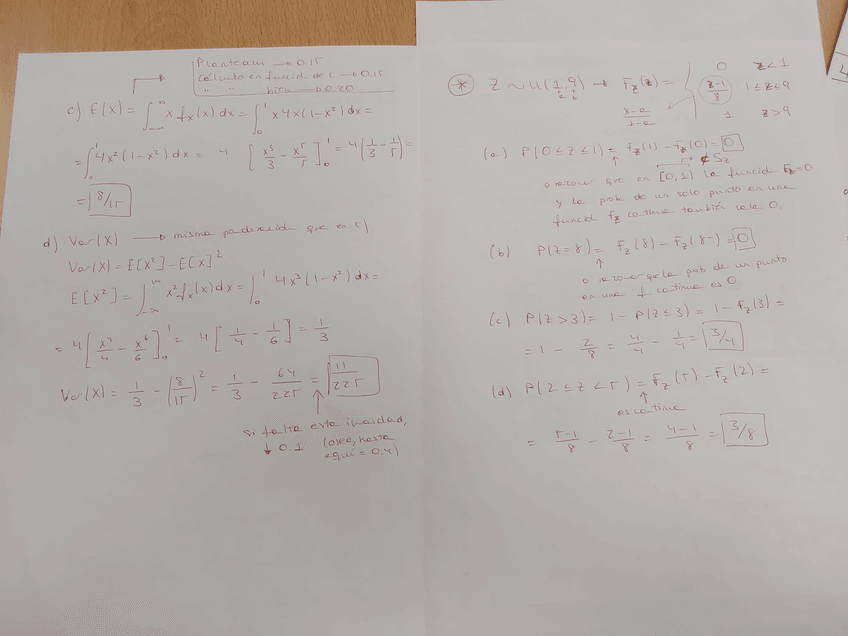 Planteam → 0.15
Cálculo en función de c → 0.15
" " bien → 0.20
c) E(X) = ∫_{-∞}^{∞} x f_X(x) dx = ∫_0^1 x 4x(1-x²) dx =
= ∫_0^1 4x²(1-x²) dx = 4 [x³/3 - x⁵/5]_0^1 = 4(1/3 - 1/5) =
= 8/15
d) Var(X) → misma ponderación que en c)
Var(X) = E[X²] - E[X]²
E[X²] = ∫_{-∞}^{∞} x² f_X(x) dx = ∫_0^1 4x³(1-x²) dx =
= 4 [x⁴/4 - x⁶/6]_0^1 = 4 [1/4 - 1/6] = 1/3
Var(X) = 1/3 - (8/15)² = 1/3 - 64/225 = 11/225
si falta esta igualdad,
↓ 0.1 (osea, hasta
aquí = 0.4)
* Z ~ U(1,9) → F_Z(z) = { 0 z<1
(z-1)/8 1≤z≤9
1 z>9
a b
(x-a)/(b-a)
(a) P(0≤Z≤1) = F_Z(1) - F_Z(0) = 0
∉ S_Z
o razonar que en [0,1) la función F_Z=0
y la prob de un solo punto en una
función f_Z continua también vale 0.
(b) P(Z=8) = F_Z(8) - F_Z(8-) = 0
o razonar que la prob de un punto
en una f continua es 0.
(c) P(Z>3) = 1 - P(Z≤3) = 1 - F_Z(3) =
= 1 - 2/8 = 4/4 - 1/4 = 3/4
(d) P(2≤Z<5) = F_Z(5) - F_Z(2) =
es continua
= (5-1)/8 - (2-1)/8 = (4-1)/8 = 3/8